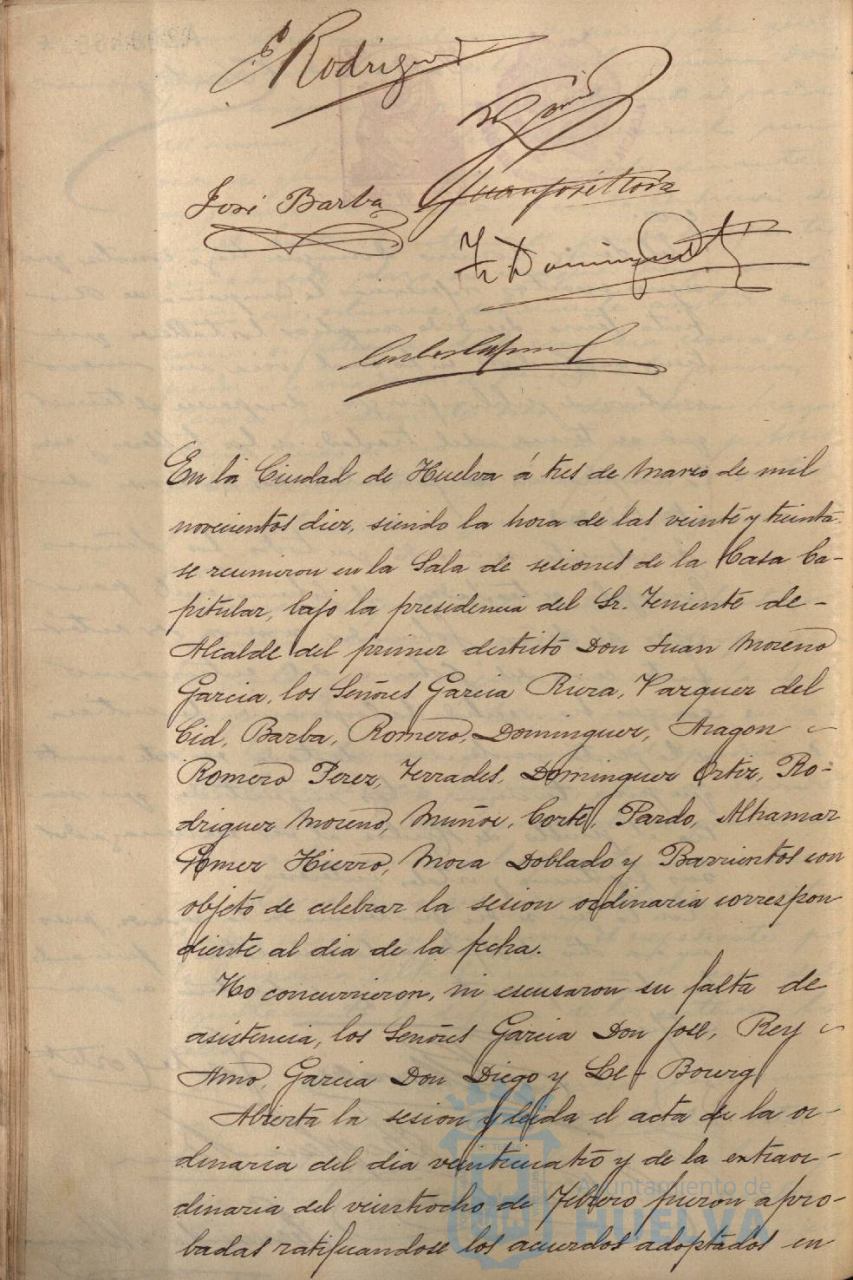 E Rodriguez
José Barba
Juan José Mora
Fr Dominguez
En la Ciudad de Huelva á tres de Marzo de mil
novecientos diez, siendo la hora de las veinte y treinta
se reunieron en la Sala de sesiones de la Casa Ca-
pitular, bajo la presidencia del Sr. Teniente de-
Alcalde del primer distrito Don Juan Moreno
Garcia, los Señores Garcia Riera, Vazquez del
Cid, Barba, Romero, Dominguez, Aragon -
Romero Perez, Terrades, Dominguez Ortiz, Ro-
driguez Moreno, Muñoz, Corte, Pardo, Alhamar
Gomez Hierro, Mora Doblado y Barrientos con
objeto de celebrar la sesion ordinaria correspon
diente al dia de la fecha.
No concurrieron, ni escusaron su falta de
asistencia, los Señores Garcia Don José, Rey -
Amo, Garcia Don Diego y Le-Bourg
Abierta la sesion y leida el acta de la or-
dinaria del dia veinticuatro y de la extraor-
dinaria del veintiocho de Febrero fueron apro-
badas ratificandose los acuerdos adoptados en
Ayuntamiento de
HUELVA